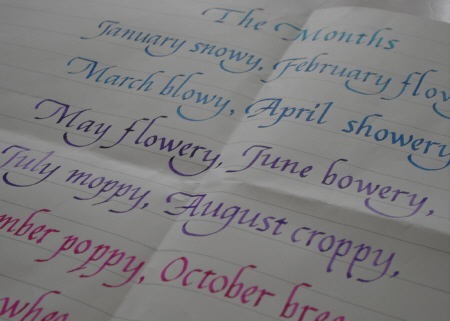 The Months
January snowy, February flow
March blowy, April showery
May flowery, June bowery,
July moppy, August croppy,
mber poppy, October bree
whe